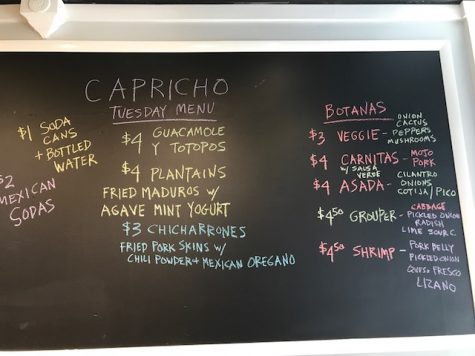 CAPRICHO
TUESDAY MENU
$1 SODA
CANS
+ BOTTLED
WATER
$2
MEXICAN
SODAS
$4 GUACAMOLE
Y TOTOPOS
$4 PLANTAINS
FRIED MADUROS W/
AGAVE MINT YOGURT
$3 CHICHARRONES
FRIED PORK SKINS W/
CHILI POWDER + MEXICAN OREGANO
BOTANAS
$3 VEGGIE - ONION
CACTUS
PEPPERS
MUSHROOMS
$4 CARNITAS - MOJO
W/ SALSA VERDE PORK
$4 ASADA - CILANTRO
ONIONS
COTIJA/PICO
$4.50 GROUPER - CABBAGE
PICKLED ONION
RADISH
LIME SOUR C.
$4.50 SHRIMP - PORK BELLY
PICKLED ONION
QUESO FRESCO
LIZANO